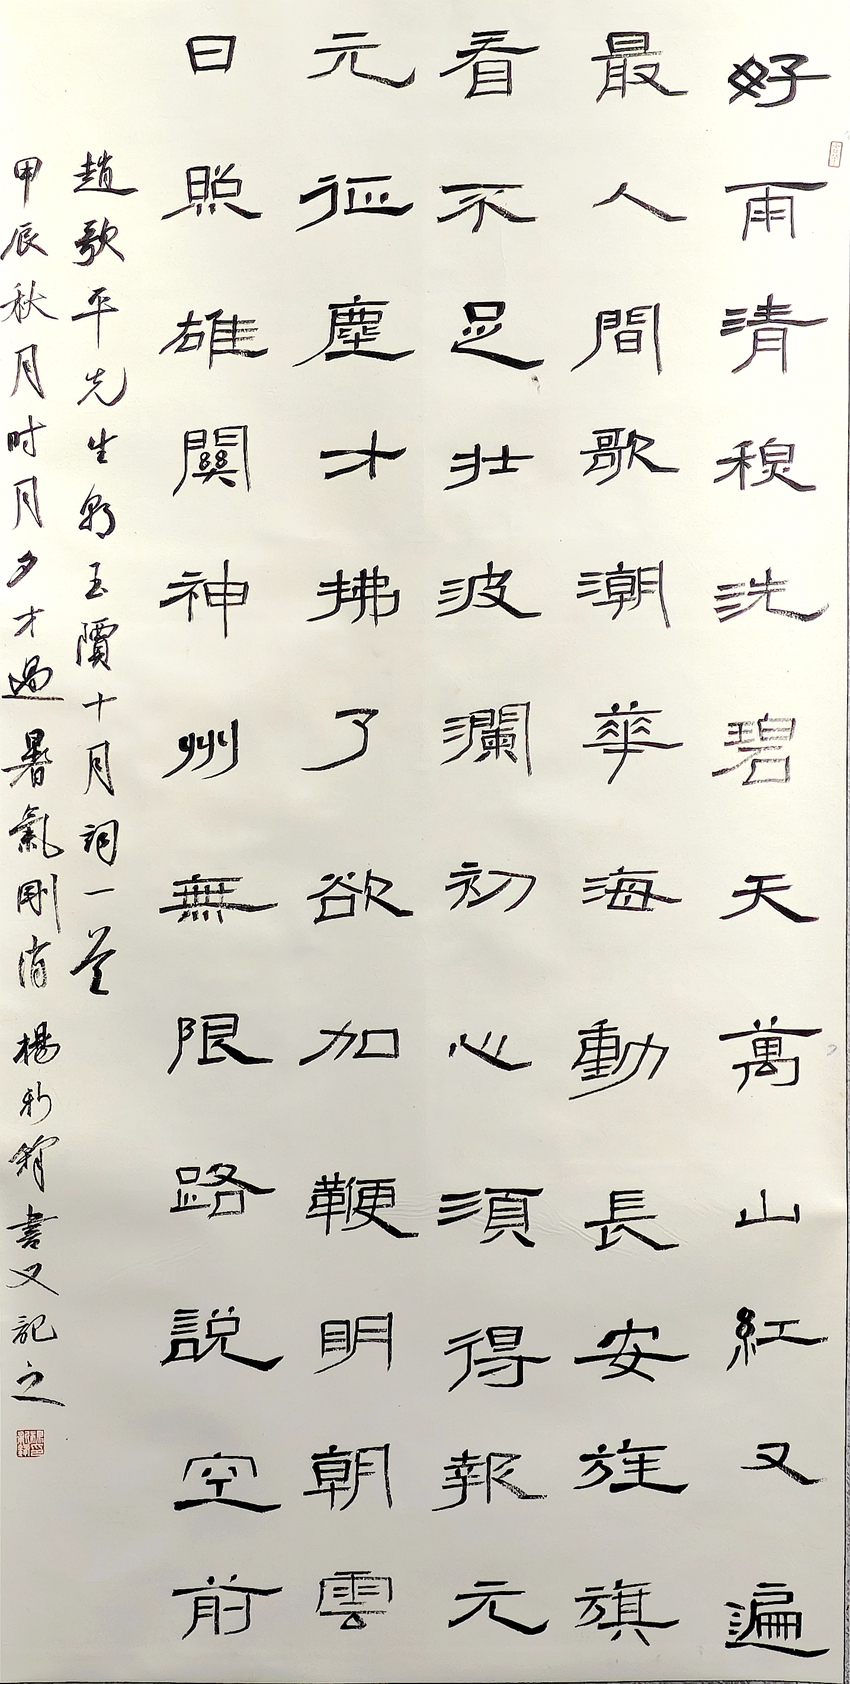 好雨清穆洗碧天萬山紅又遍
最人間歌潮華海動長安旌旗
看不足壯波瀾初心須得報元
元征塵才拂了欲加鞭明朝雲
日照雄關神州無限路說空前
趙歌平先生玉十月詞一首
甲辰秋月时月夕才過暑氣剛消楊新書又記之